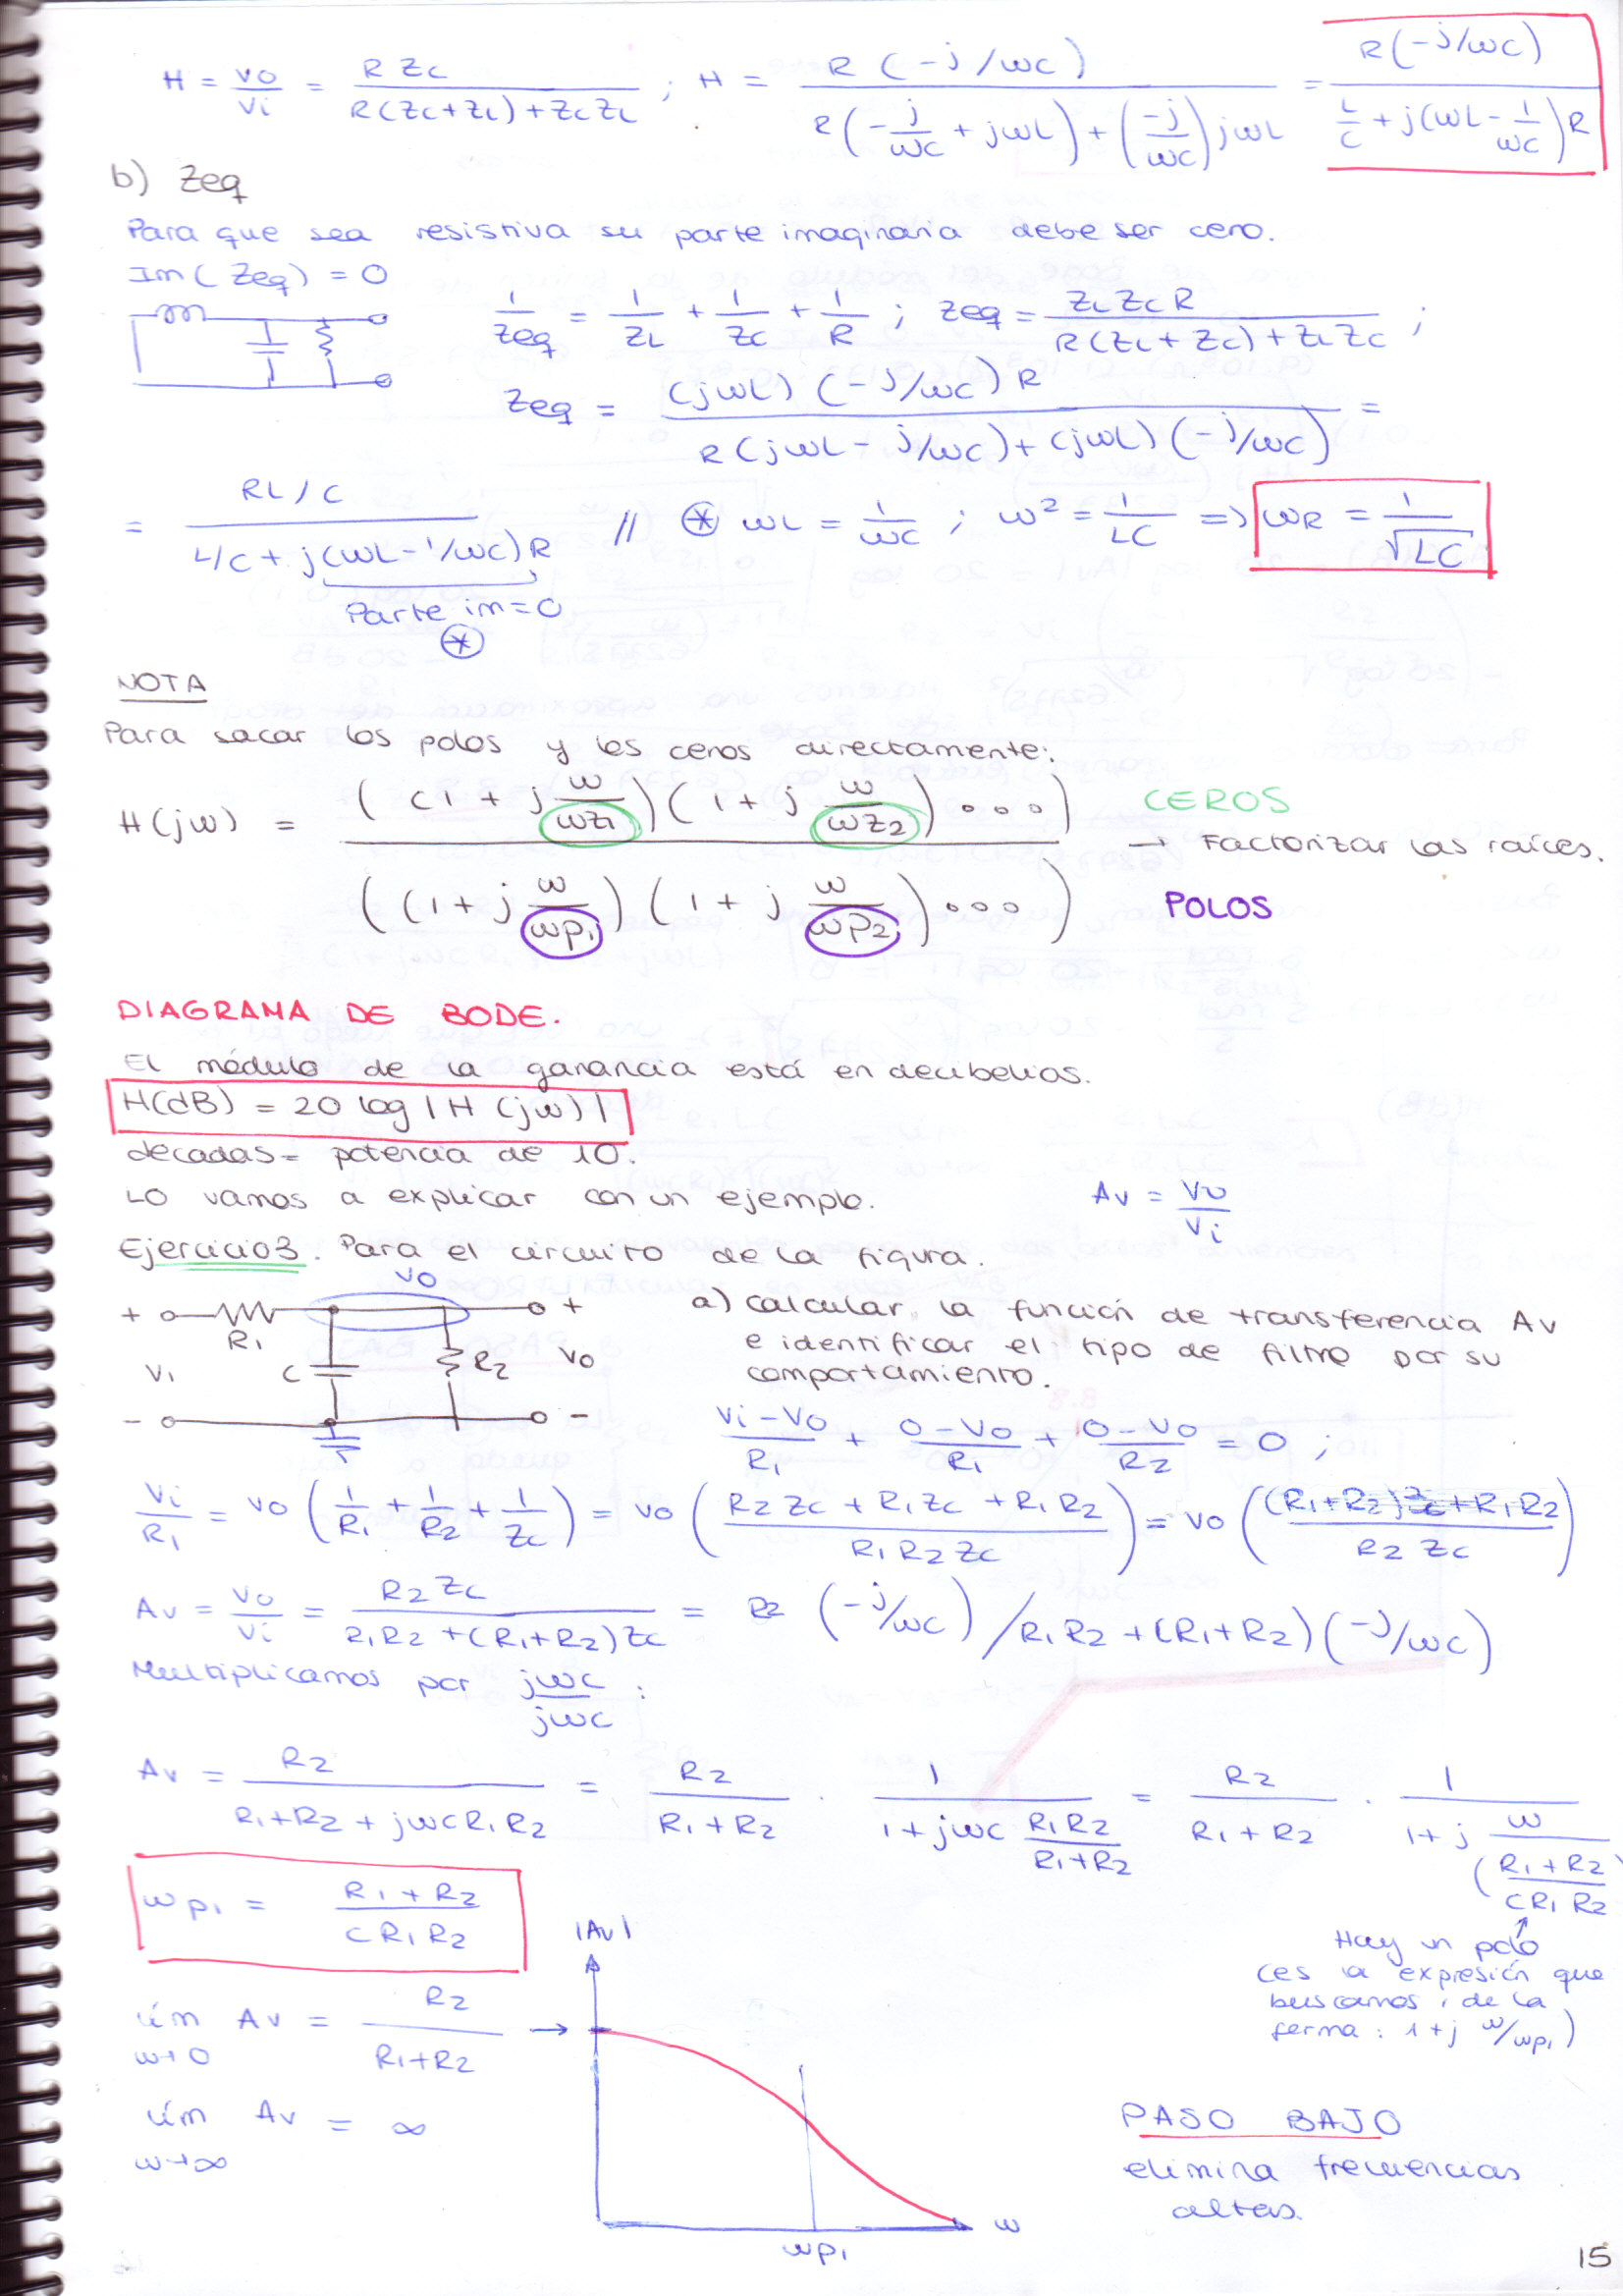 H = Vo/Vi = R Zc / R(Zc+ZL)+ZcZL ; H = R(-j/ωC) / R(-j/ωC + jωL) + (-j/ωC)jωL = R(-j/ωC) / L/C + j(ωL - 1/ωC)R
b) Zeq
Para que sea resistiva su parte imaginaria debe ser cero.
Im(Zeq) = 0
1/Zeq = 1/ZL + 1/Zc + 1/R ; Zeq = ZL Zc R / R(ZL+Zc)+ZL Zc ;
Zeq = (jωL)(-j/ωC)R / R(jωL - j/ωC)+(jωL)(-j/ωC) =
= RL/C / L/C + j(ωL-1/ωC)R // * ωL = 1/ωC ; ω² = 1/LC => ωR = 1/√LC
Parte im=0
*
NOTA
Para sacar los polos y los ceros directamente:
H(jω) = ((1 + j ω/ωz1)(1 + j ω/ωz2)∘∘∘) / ((1 + j ω/ωp1)(1 + j ω/ωp2)∘∘∘)
CEROS
→ Factorizar las raíces.
POLOS
DIAGRAMA DE BODE.
El módulo de la ganancia está en decibelios.
H(dB) = 20 log |H(jω)|
decadas = potencia de 10.
Lo vamos a explicar con un ejemplo.
Av = Vo/Vi
Ejercicio 3. Para el circuito de la figura.
Vo
+ R1 +
Vi C R2 Vo
- -
a) calcular la función de transferencia Av
e identificar el tipo de filtro por su
comportamiento.
Vi-Vo/R1 + 0-Vo/R1 + 0-Vo/R2 = 0 ;
Vi/R1 = Vo(1/R1 + 1/R2 + 1/Zc) = Vo(R2 Zc + R1 Zc + R1 R2 / R1 R2 Zc) = Vo((R1+R2)Zc+R1R2 / R2 Zc)
Av = Vo/Vi = R2 Zc / R1R2+(R1+R2)Zc = R2 (-j/ωC) / R1R2+(R1+R2)(-j/ωC)
Multiplicamos por jωC/jωC :
Av = R2 / R1+R2+jωCR1R2 = R2/R1+R2 · 1 / 1+jωC R1R2/R1+R2 = R2/R1+R2 · 1 / 1+j ω/(R1+R2/CR1R2
ωp1 = R1+R2 / CR1R2
Hay un polo
(es la expresión que
buscamos, de la
forma: 1+j ω/ωp1)
lím Av = R2/R1+R2 →
ω→0
lím Av = ∞
ω→∞
|Av|
ω
ωp1
PASO BAJO
elimina frecuencias
altas.
15